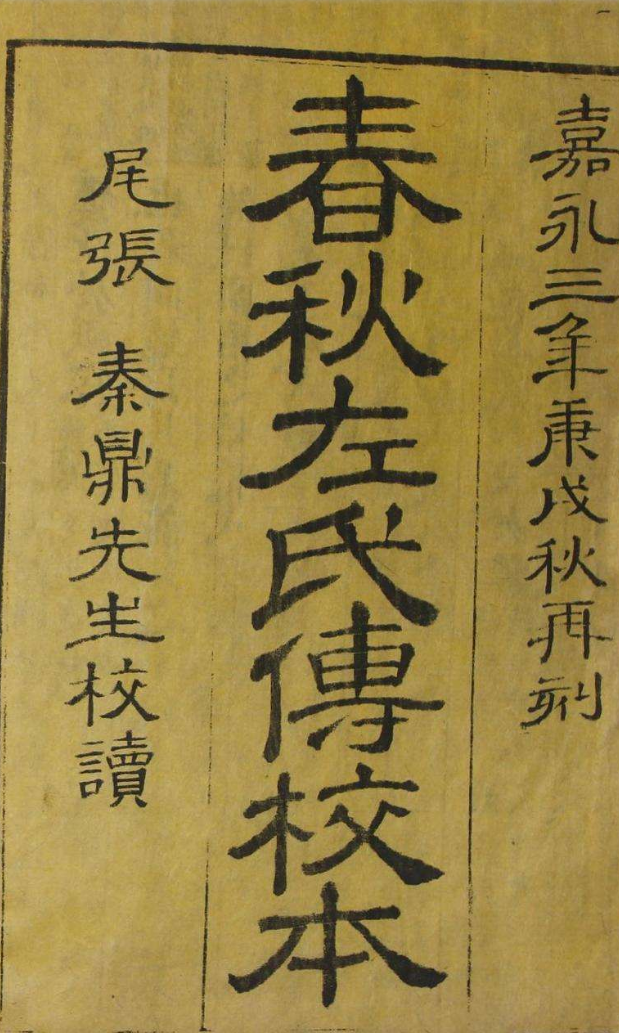 嘉永三年庚戌秋再刻
春秋左氏傳校本
尾張 秦鼎先生校讀